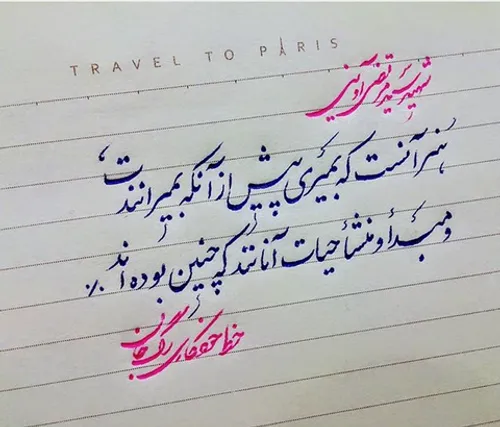 TRAVEL TO PARIS
شهید سید مرتضی آوینی
هنر آنست که بمیری پیش از آنکه بمیرانندت،
و مبدأ و منشأ حیات آنانند که چنین بوده‌اند
خط